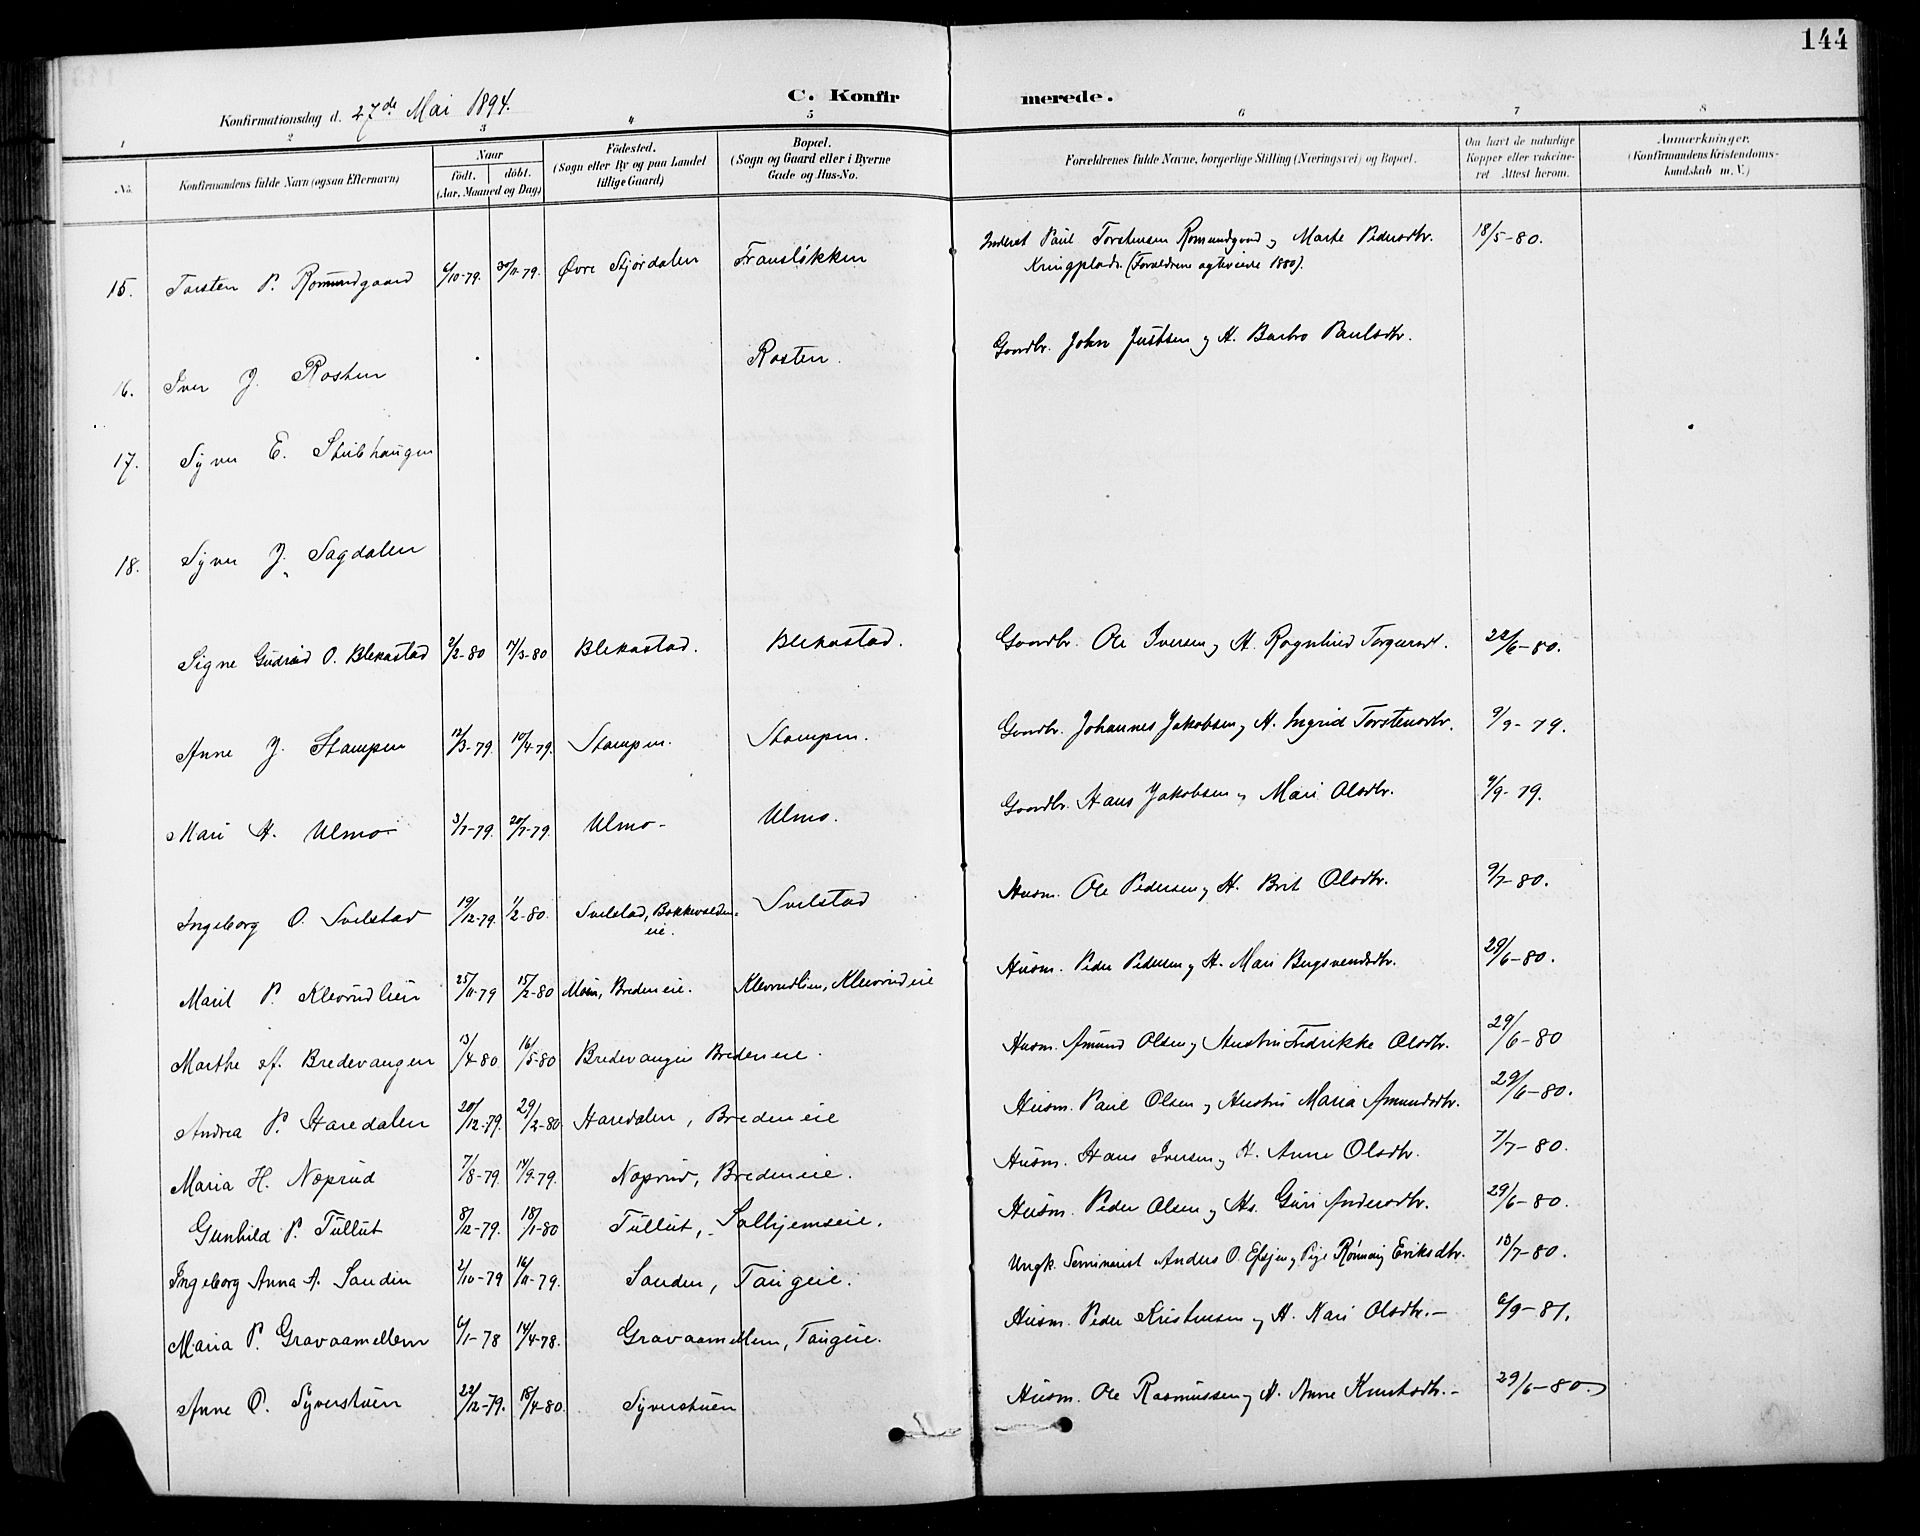 144
C. Konfirmerede.
Konfirmationsdag d. 27de Mai 1894.
1 2 3 4 5 6 7 8
No. Konfirmandens fulde Navn (ogsaa Efternavn) Naar födt. döbt. (Aar, Maaned og Dag) Födested. (Sogn eller By og paa Landet tillige Gaard) Bopæl. (Sogn og Gaard eller i Byerne Gade og Hus-No. Forældrenes fulde Navne, borgerlige Stilling (Næringsvei) og Bopæl. Om havt de naturlige Kopper eller vakcineret. Attest herom. Anmærkninger. (Konfirmandens Kristendomskundskab m. V.)
15. Torsten P. Romundgaard 6/10-79. 30/11-79. Øvre Stjørdalen Fransløkken Inderst Paul Torstensen Romundgaard og Marte Pedersdtr. 18/5-80.
Kringplads. (Forældrene ægteviede 1880).
16. Iver J. Rosten Rosten. Gaardbr. John Justsen og H. Barbro Paulsdtr.
17. Syver E. Stubhaugen
18. Syver J. Sagdalen
Signe Gudrid O. Blekastad 2/2-80 17/3-80 Blekastad. Blekastad. Gaardbr. Ole Iversen og H. Ragnhild Torgersdt. 22/6-80.
Anne J. Stampen 12/3-79. 10/4-79. Stampen. Stampen. Gaardbr. Johannes Jakobsen og H. Ingrid Torstensdtr. 9/9-79.
Mari H. Ulmo 3/7-79. 20/7-79. Ulmo- Ulmo. Gaardbr. Hans Jakobsen og Mari Olsdtr. 9/9-79.
Ingeborg O. Svelstad 19/12-79. 1/2-80. Svelstad, Svelstad Husm. Ole Pedersen og H. Brit Olsdtr. 9/7-80.
eie.
Marit P. Klevrudlien 25/11-79 15/2-80 Moen, Breden eie. Klevrudlien, Klevrud eie Husm. Peder Pedersen og H. Mari Bergsvendsdtr. 29/6-80.
Marthe A. Bredevangen 13/4-80 16/5-80 Bredevangen Breden eie. Husm. Amund Olsen og Hustru Fredrikke Olsdtr. 29/6-80
Andrea P. Haredalen 20/12-79. 29/2-80 Haredalen, Breden eie Husm. Paul Olsen og Hustru Maria Amundsdtr. 29/6-80.
Maria H. Nøprud 7/8-79. 14/9-79. Nøprud, Breden eie. Husm. Hans Iversen og H. Anne Olsdtr. 7/7-80.
Gunhild P. Tullut 8/12-79. 18/1-80 Tullut, Solhjemseie. Husm. Peder Olsen og Hs. Guri Andersdtr. 29/6-80.
Ingeborg Anna A. Sanden 2/10-79 16/11-79. Sanden, Tangeie. Ungk. Seminarist Anders O. og Pige Rønnaug Eriksdtr. 13/7-80.
Maria P. Gravaamellem 6/1-78 14/4-78. Gravaamellem, Tangeie. Husm. Peder Kristensen og H. Kari Olsdtr.- 6/9-81.
Anne O. Syverstuen 22/12-79. 18/4-80. Syverstuen Husm. Ole Rasmussen og H. Anne Knutsdtr.- 29/6-80.